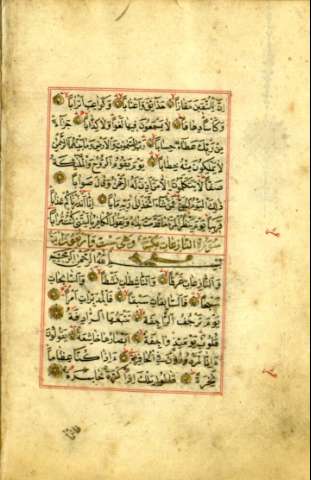 إِنَّ لِلْمُتَّقِينَ مَفَازًا حَدَائِقَ وَأَعْنَابًا وَكَوَاعِبَ أَتْرَابًا
وَكَأْسًا دِهَاقًا لَا يَسْمَعُونَ فِيهَا لَغْوًا وَلَا كِذَّابًا جَزَاءً
مِنْ رَبِّكَ عَطَاءً حِسَابًا رَبِّ السَّمَوَاتِ وَالْأَرْضِ وَمَا بَيْنَهُمَا الرَّحْمَنِ
لَا يَمْلِكُونَ مِنْهُ خِطَابًا يَوْمَ يَقُومُ الرُّوحُ وَالْمَلَئِكَةُ
صَفًّا لَا يَتَكَلَّمُونَ إِلَّا مَنْ أَذِنَ لَهُ الرَّحْمَنُ وَقَالَ صَوَابًا
ذَلِكَ الْيَوْمُ الْحَقُّ فَمَنْ شَاءَ اتَّخَذَ إِلَى رَبِّهِ مَآبًا إِنَّا أَنْذَرْنَاكُمْ عَذَابًا
قَرِيبًا يَوْمَ يَنْظُرُ الْمَرْءُ مَا قَدَّمَتْ يَدَاهُ وَيَقُولُ الْكَافِرُ يَا لَيْتَنِي كُنْتُ تُرَابًا
سورة النازعات مكية وهي ست واربعون
بسم الله الرحمن الرحيم
وَالنَّازِعَاتِ غَرْقًا وَالنَّاشِطَاتِ نَشْطًا وَالسَّابِحَاتِ
سَبْحًا فَالسَّابِقَاتِ سَبْقًا فَالْمُدَبِّرَاتِ أَمْرًا
يَوْمَ تَرْجُفُ الرَّاجِفَةُ تَتْبَعُهَا الرَّادِفَةُ
قُلُوبٌ يَوْمَئِذٍ وَاجِفَةٌ أَبْصَارُهَا خَاشِعَةٌ يَقُولُونَ
ءَإِنَّا لَمَرْدُودُونَ فِي الْحَافِرَةِ ءَإِذَا كُنَّا عِظَامًا
نَخِرَةً قَالُوا تِلْكَ إِذًا كَرَّةٌ خَاسِرَةٌ
فانما